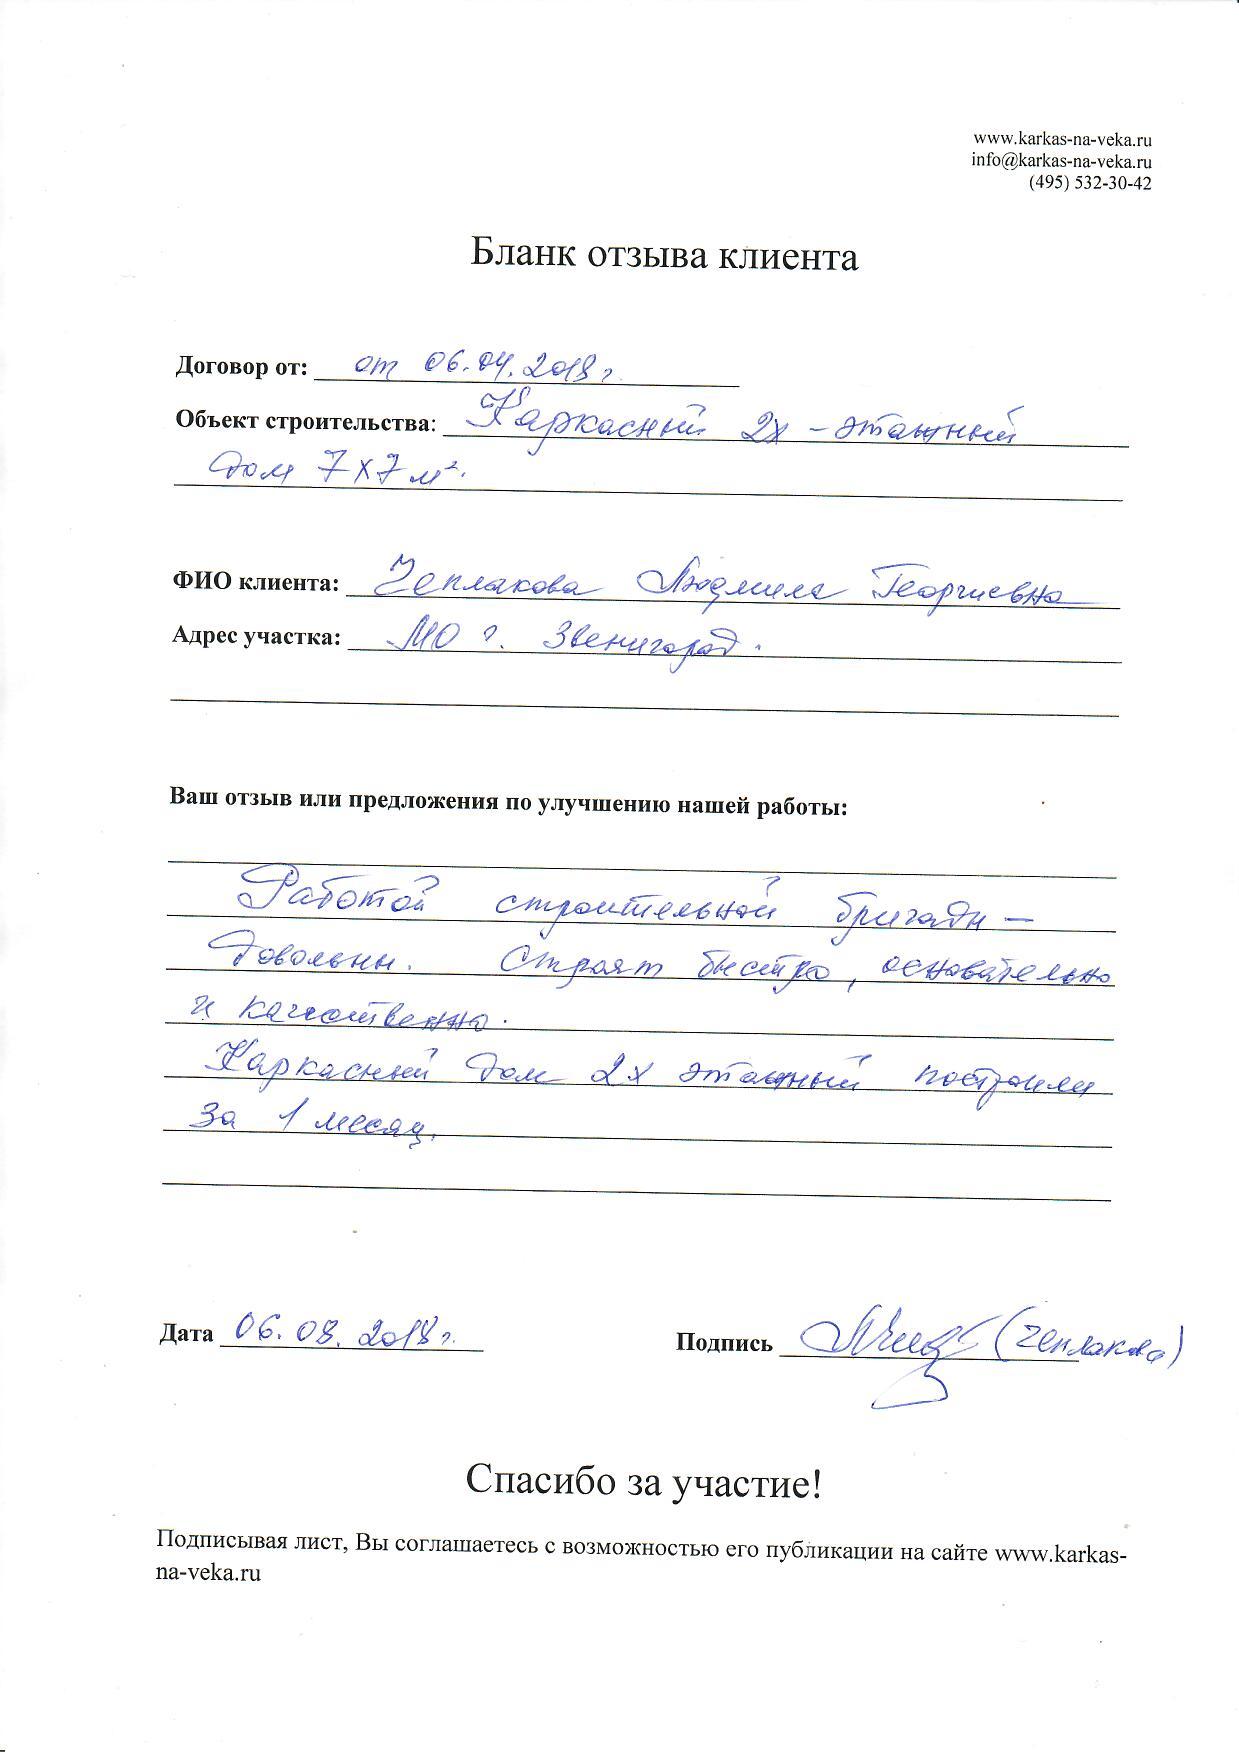 www.karkas-na-veka.ru
info@karkas-na-veka.ru
(495) 532-30-42
Бланк отзыва клиента
Договор от: от 06.04.2018 г.
Объект строительства: Каркасный 2х - этажный
дом 7х7 м².
ФИО клиента: Чеплакова Людмила Георгиевна
Адрес участка: МО г. Звенигород.
Ваш отзыв или предложения по улучшению нашей работы:
Работой строительной бригады -
довольны. Строят быстро, основательно
и качественно.
Каркасный дом 2х этажный построили
за 1 месяц.
Дата 06.08.2018 г. Подпись (Чеплакова)
Спасибо за участие!
Подписывая лист, Вы соглашаетесь с возможностью его публикации на сайте www.karkas-
na-veka.ru